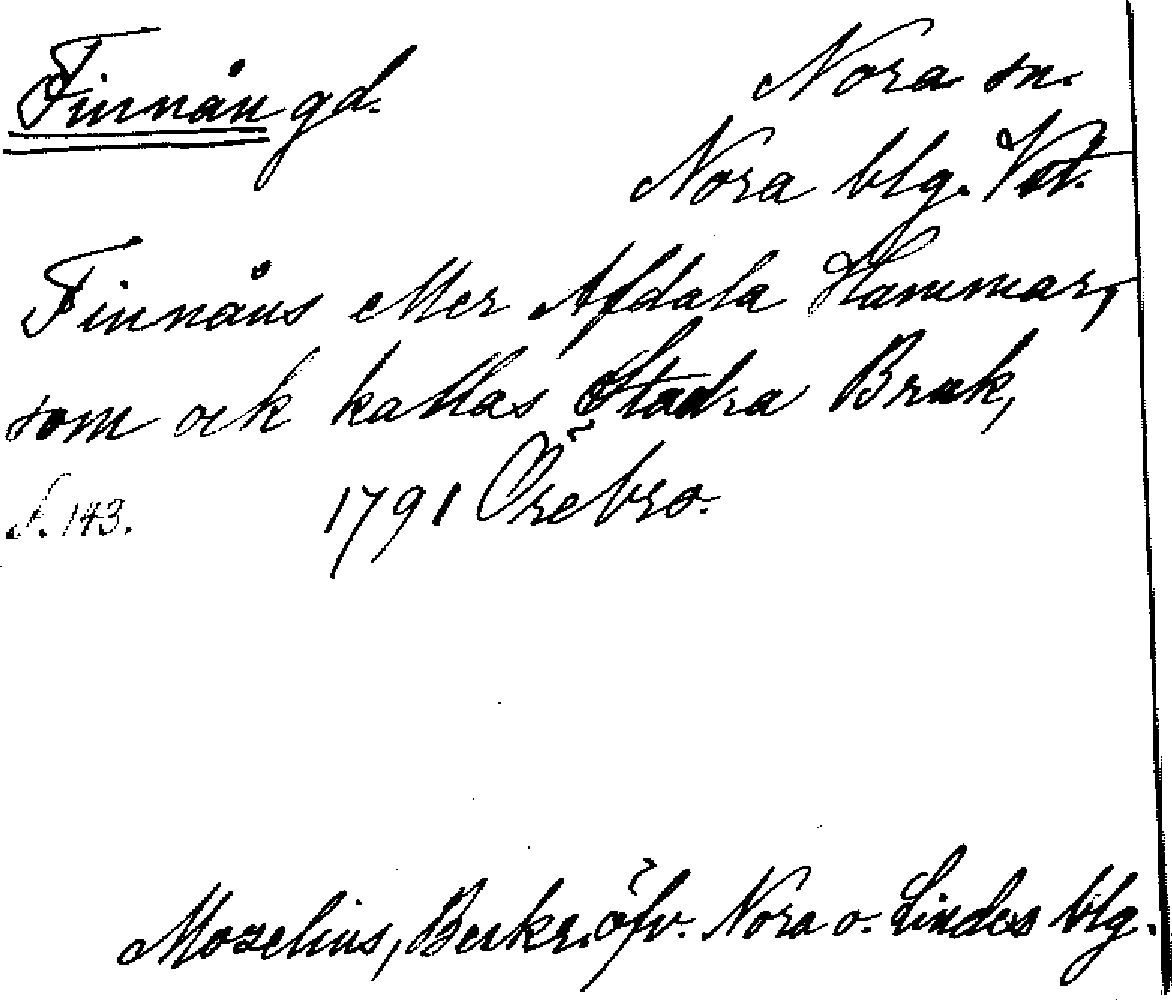 Finnån gd.
Nora sn.
Nora blg. Vstl.
Finnåns eller Afdala Hammar,
som ock kallas Stadra Bruk,
S. 143. 1791 Örebro.
Mozelius, Beskr. öfv. Nora o. Lindes blg.